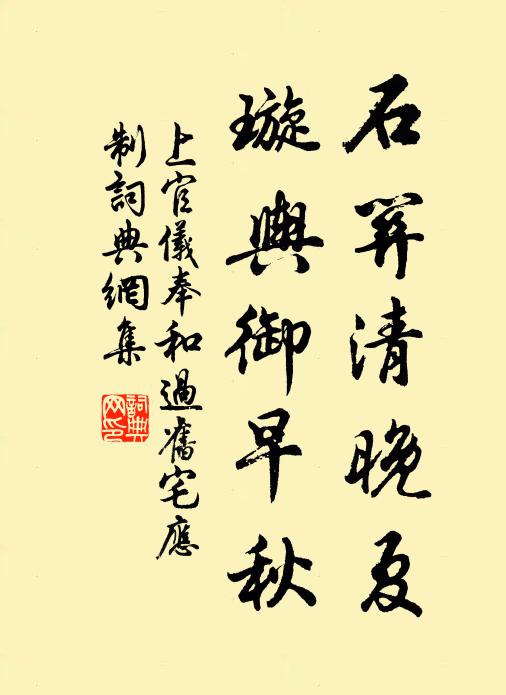 石關清晚夏
璇輿御早秋
上官儀奉和過舊宅應
制詞典網集
詞典
网印